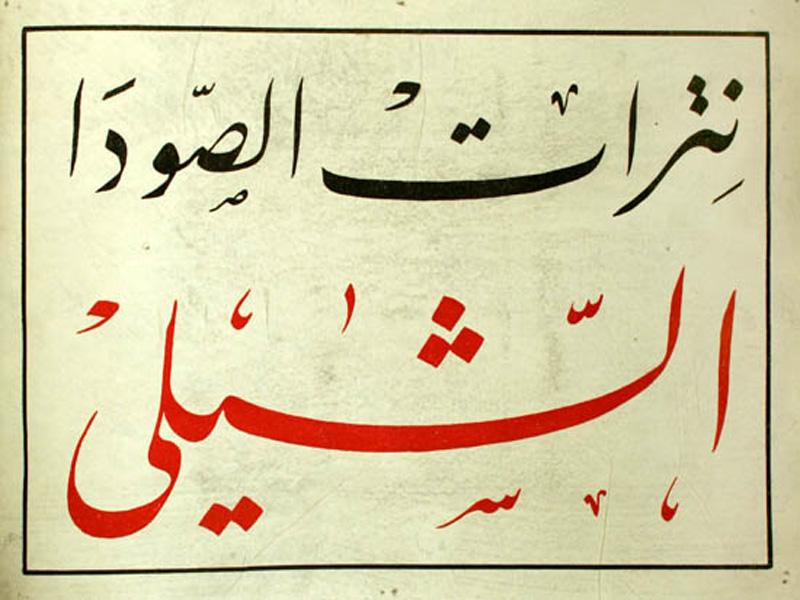 نترات الصّودَا
الشّيلى